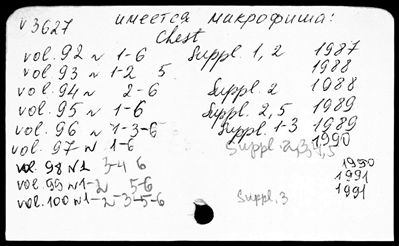 v 3627 имеется микрофиша:
Chest
vol. 92 n 1-6 Suppl. 1, 2 1987
vol. 93 n 1-2 5 1988
vol. 94 n 2-6 Suppl. 2 1988
vol. 95 n 1-6 Suppl. 2, 5 1989
vol. 96 n 1-3-6 Suppl. 1-3 1989
vol. 97 n 1-6 Suppl. 1990
vol. 98 N1 3-4 6 1990
vol. 99 n 1-2 5-6 1991
vol. 100 n 1-2-3-5-6 Suppl. 3 1991